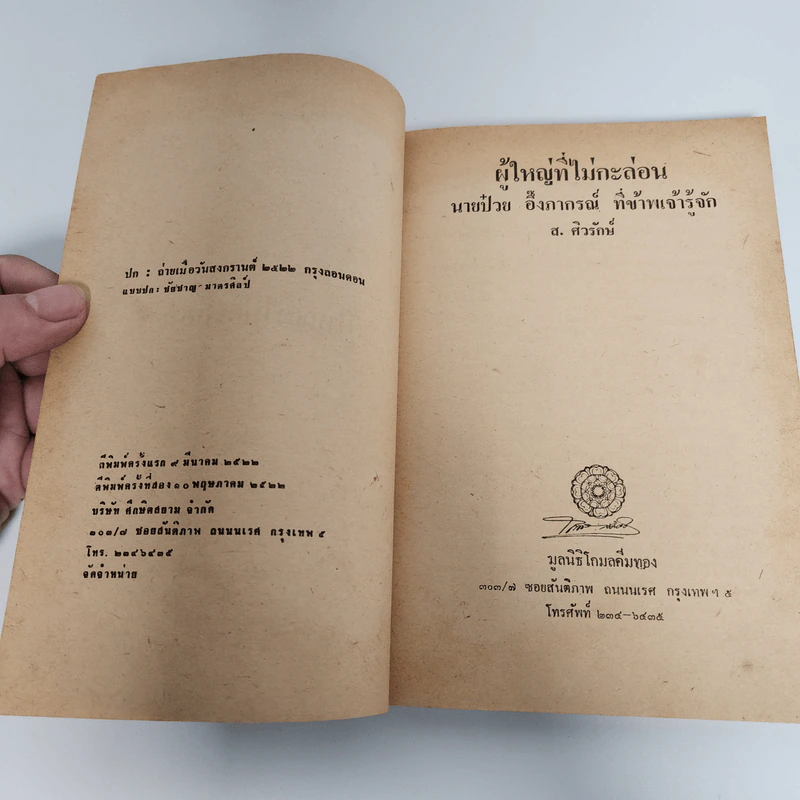 ปก : ถ่ายเมื่อวันสงกรานต์ ๒๕๒๒ กรุงลอนดอน
แบบปก: ชัยชาญ มาตรศิลป์
ตีพิมพ์ครั้งแรก ๙ มีนาคม ๒๕๒๒
ตีพิมพ์ครั้งที่สอง ๑๐ พฤษภาคม ๒๕๒๒
บริษัท ศึกษิตสยาม จำกัด
๓๐๓/๗ ซอยสันติภาพ ถนนนเรศ กรุงเทพ ๕
โทร. ๒๓๔๖๔๓๕
จัดจำหน่าย
ผู้ใหญ่ที่ไม่กะล่อน
นายป๋วย อึ๊งภากรณ์ ที่ข้าพเจ้ารู้จัก
ส. ศิวรักษ์
มูลนิธิโกมลคีมทอง
๓๐๓/๗ ซอยสันติภาพ ถนนนเรศ กรุงเทพฯ ๕
โทรศัพท์ ๒๓๔-๖๔๓๕